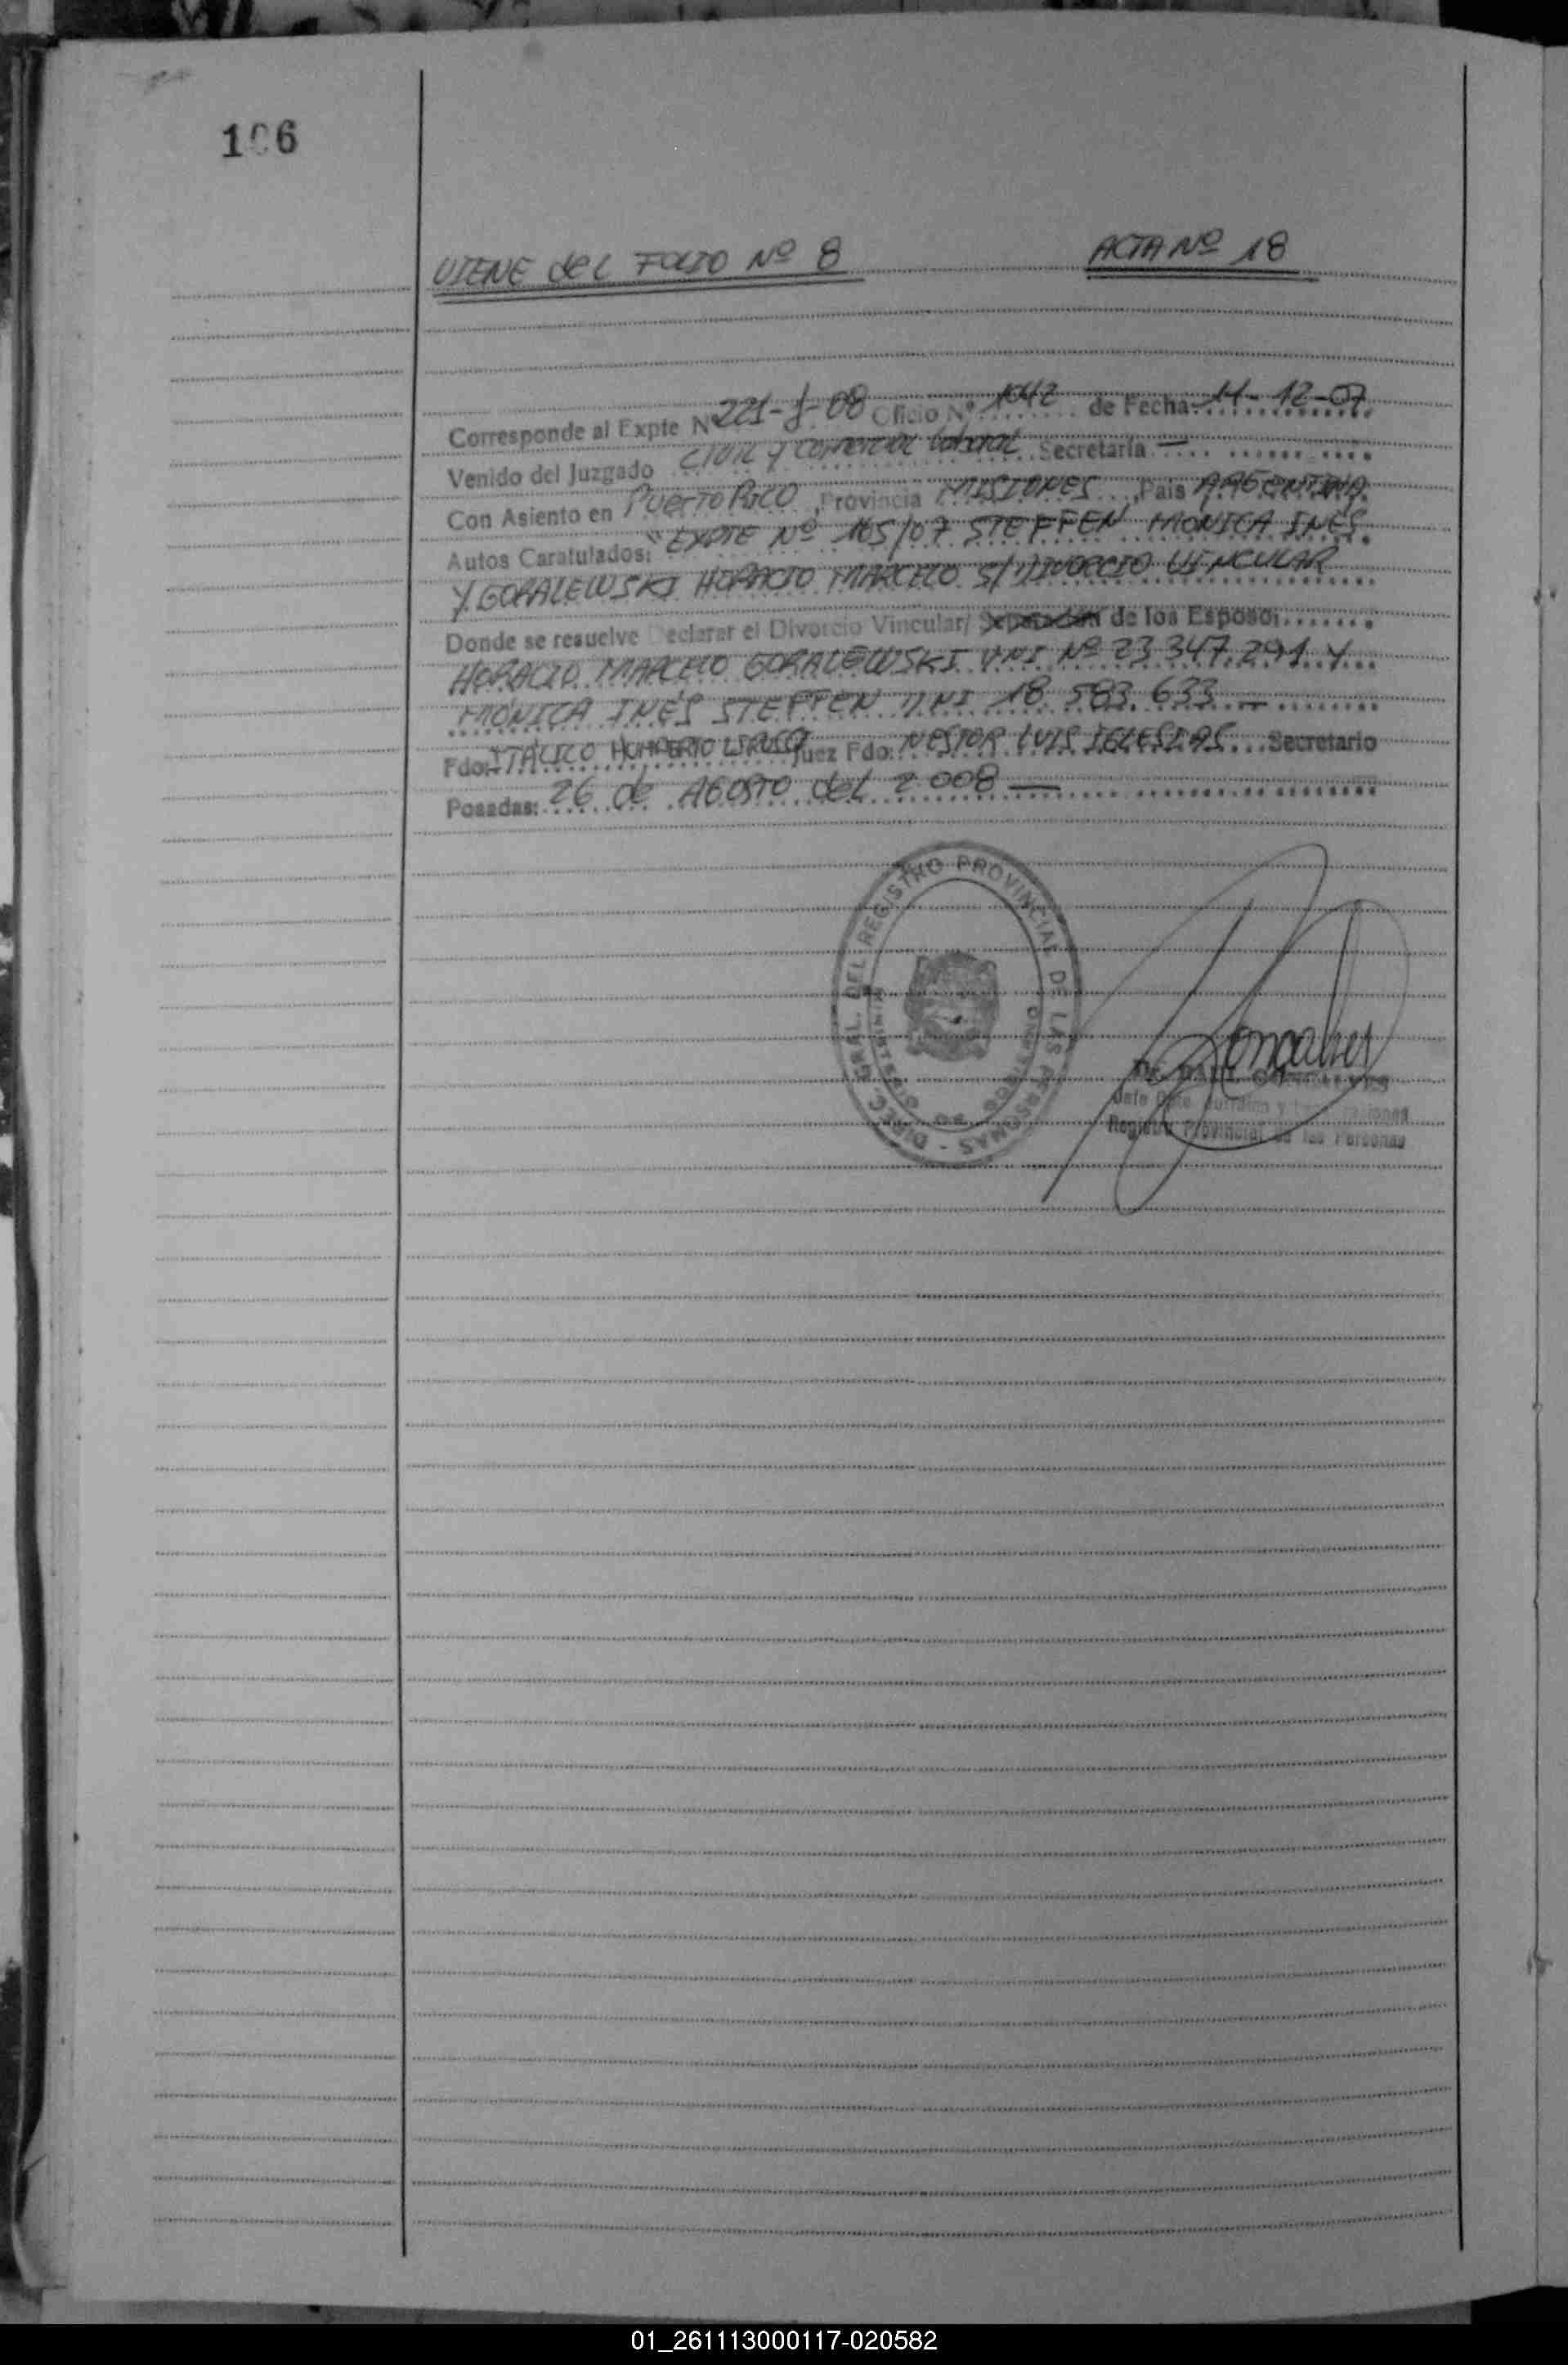 106
VIENE del FOLIO Nº 8 ACTA Nº 18
Corresponde al Expte Nº 221-J-08 Oficio Nº 1042 de Fecha: 11-12-07
Venido del Juzgado CIVIL Y Comercial Laboral Secretaría —
Con Asiento en Puerto Rico, Provincia MISIONES, País ARGENTINA
Autos Caratulados: "EXPTE Nº 105/07 STEFFEN MONICA INES
Y GORALEWSKI HORACIO MARCELO S/DIVORCIO VINCULAR
Donde se resuelve Declarar el Divorcio Vincular/ Separación de los Esposo:
HORACIO MARCELO GORALEWSKI DNI Nº 23 347.291 Y
MÓNICA INÉS STEFFEN DNI 18.583.633 —
Fdo: ITALICO HUMBERTO Juez Fdo: NESTOR LUIS IGLESIAS Secretario
Posadas: 26 de AGOSTO del 2008 —
DIREC. GRAL. DEL REGISTRO PROVINCIAL DE LAS PERSONAS
Goncalves
Registro Provincial de las Personas
01_261113000117-020582